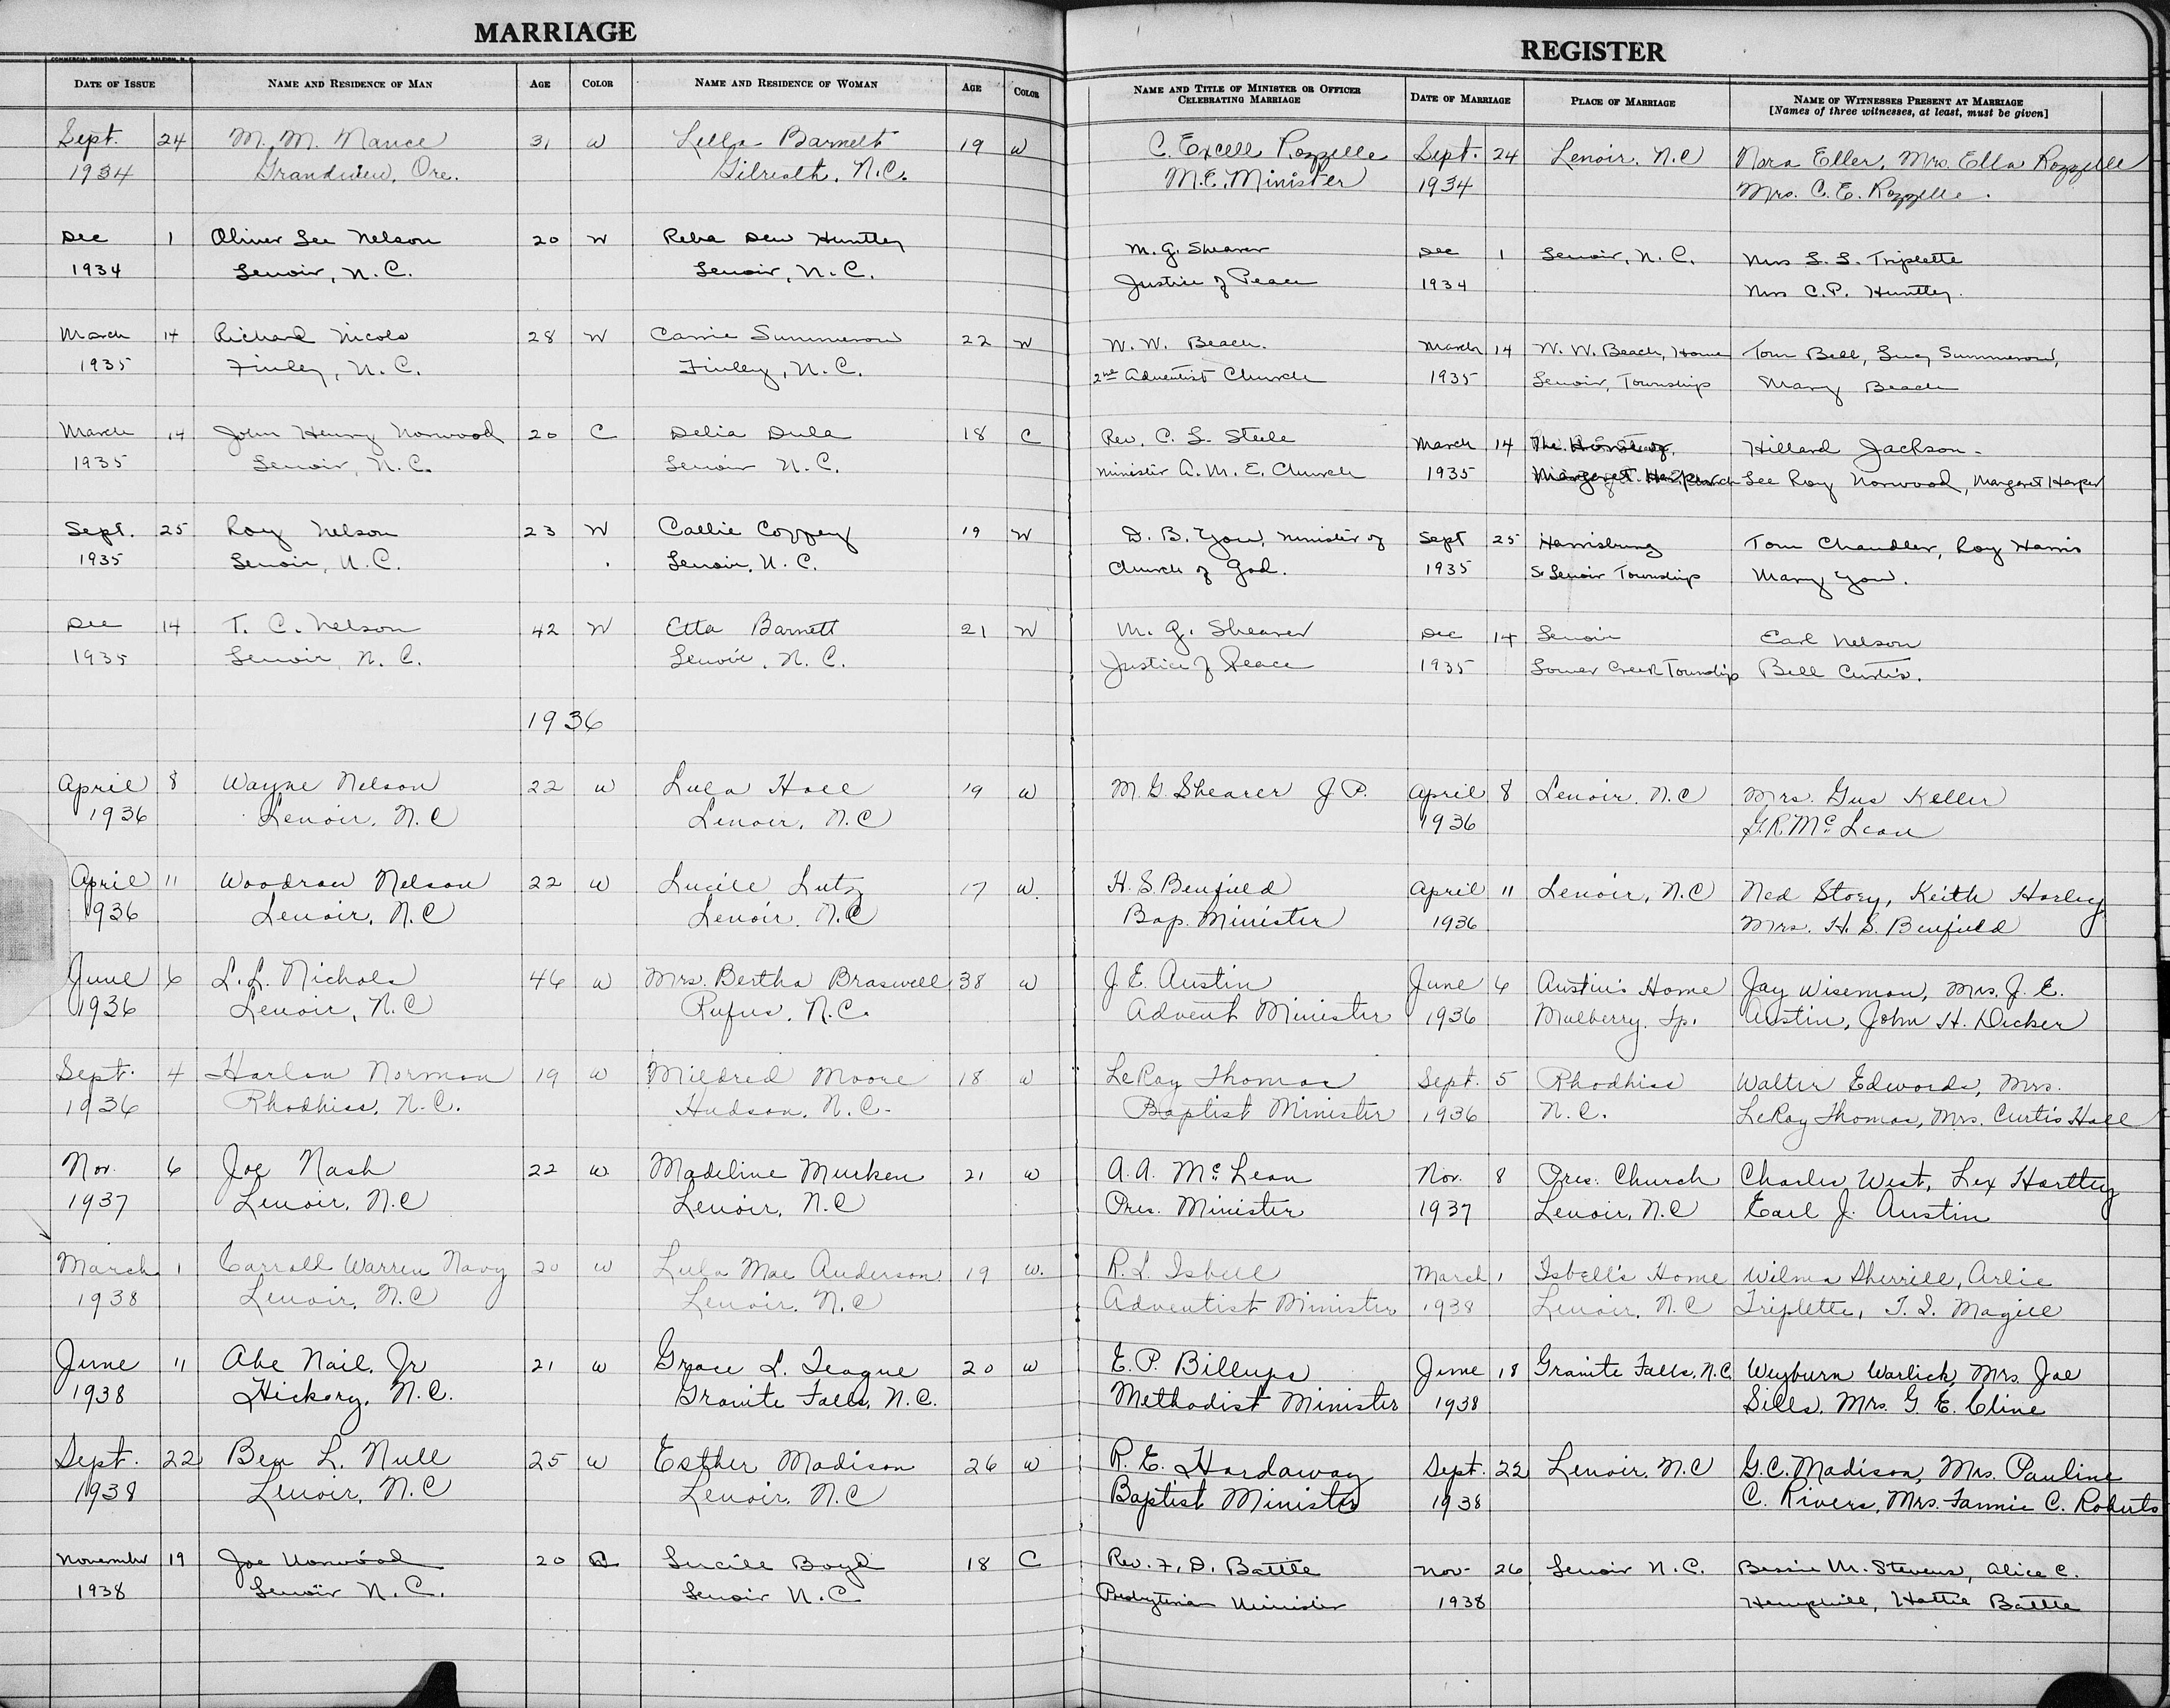 MARRIAGE
REGISTER
COMMERCIAL PRINTING COMPANY, RALEIGH, N. C.
DATE OF ISSUE NAME AND RESIDENCE OF MAN AGE COLOR NAME AND RESIDENCE OF WOMAN AGE COLOR NAME AND TITLE OF MINISTER OR OFFICER CELEBRATING MARRIAGE DATE OF MARRIAGE PLACE OF MARRIAGE NAME OF WITNESSES PRESENT AT MARRIAGE
[Names of three witnesses, at least, must be given]
Sept. 24 M. M. Nance 31 W Lella Barnett 19 W C. Excell Rozzelle Sept. 24 Lenoir, N.C Nora Eller, Mrs. Ella Rozzelle
1934 Grandview, Ore. Gilreath, N.C. M.E. Minister 1934 Mrs. C. E. Rozzelle.
Dec 1 Oliver Lee Nelson 20 W Reba Dew Huntley M. G. Shearer Dec 1 Lenoir, N. C. Mrs L. L. Triplette
1934 Lenoir, N. C. Lenoir, N. C. Justice of Peace 1934 Mrs C. P. Huntley.
March 14 Richard Nicols 28 W Carrie Summerow 22 W W. W. Beach. March 14 W. W. Beach, Home Tom Bell, Lucy Summerow,
1935 Finley, N. C. Finley, N. C. 2nd Adventist Church 1935 Lenoir, Township Mary Beach
March 14 John Henry Norwood 20 C Delia Dula 18 C Rev. C. L. Steele March 14 The Hillard Jackson.
1935 Lenoir, N. C. Lenoir N. C. Minister A. M. E. Church 1935 Margaret Lee Roy Norwood, Margaret Harper
Sept. 25 Roy Nelson 23 W Callie Coffey 19 W D. B. Yow, Minister of Sept 25 Harrisburg Tom Chandler, Roy Harris
1935 Lenoir, N. C. Lenoir, N. C. Church of God. 1935 Lenoir Township Mary Yow.
Dec 14 T. C. Nelson 42 W Etta Barnett 21 W M. G. Shearer Dec 14 Lenoir Earl Nelson
1935 Lenoir, N. C. Lenoir, N. C. Justice of Peace 1935 Lower Creek Township Bell Curtis.
1936
April 8 Wayne Nelson 22 W Lula Hall 19 W M. G. Shearer J. P. April 8 Lenoir, N.C Mrs. Gus Keller
1936 Lenoir, N.C Lenoir, N.C 1936 G. R. McLean
April 11 Woodrow Nelson 22 W Lucile Lutz 17 W. H. S. Benfield April 11 Lenoir, N.C Ned Story, Keith Harley
1936 Lenoir, N.C Lenoir, N.C Bap. Minister 1936 Mrs. H. S. Benfield
June 6 L. L. Nichols 46 W Mrs. Bertha Braswell 38 W J. E. Austin June 6 Austin's Home Jay Wiseman, Mrs. J. E.
1936 Lenoir, N.C Rufus, N.C. Advent Minister 1936 Mulberry. Tp. Austin, John H. Dicker
Sept. 4 Harlan Norman 19 W Mildred Moore 18 W LeRoy Thomas Sept. 5 Rhodhiss Walter Edwards, Mrs.
1936 Rhodhiss, N.C. Hudson, N.C. Baptist Minister 1936 N.C. LeRoy Thomas, Mrs. Curtis Hall
Nov. 6 Joe Nash 22 W Madeline Murken 21 W A. A. McLean Nov. 8 Pres. Church Charles West, Lex Hartley
1937 Lenoir, N.C Lenoir, N.C Pres. Minister 1937 Lenoir, N.C Earl J. Austin
March 1 Carroll Warren Navy 20 W Lula Mae Anderson 19 W. R. L. Isbell March 1 Isbell's Home Wilma Sherrill, Arlie
1938 Lenoir, N.C Lenoir, N.C Adventist Minister 1938 Lenoir, N.C Triplette, T. I. Magill
June 11 Abe Nail, Jr 21 W Grace L. Teague 20 W E. P. Billups June 18 Granite Falls, N.C. Weyburn Warlick, Mrs. Joe
1938 Hickory, N.C. Granite Falls, N.C. Methodist Minister 1938 Sills, Mrs. G. E. Cline
Sept. 22 Ben L. Null 25 W Esther Madison 26 W R. E. Hardaway Sept. 22 Lenoir, N.C G. C. Madison, Mrs. Pauline
1938 Lenoir, N.C Lenoir, N.C Baptist Minister 1938 C. Rivers, Mrs. Fannie C. Roberts
November 19 Joe Norwood 20 C Lucile Boyd 18 C Rev. F. D. Battle Nov. 26 Lenoir N. C. Bessie M. Stevens, Alice C.
1938 Lenoir N. C. Lenoir N. C Presbyterian Minister 1938 Hemphill, Hattie Battle